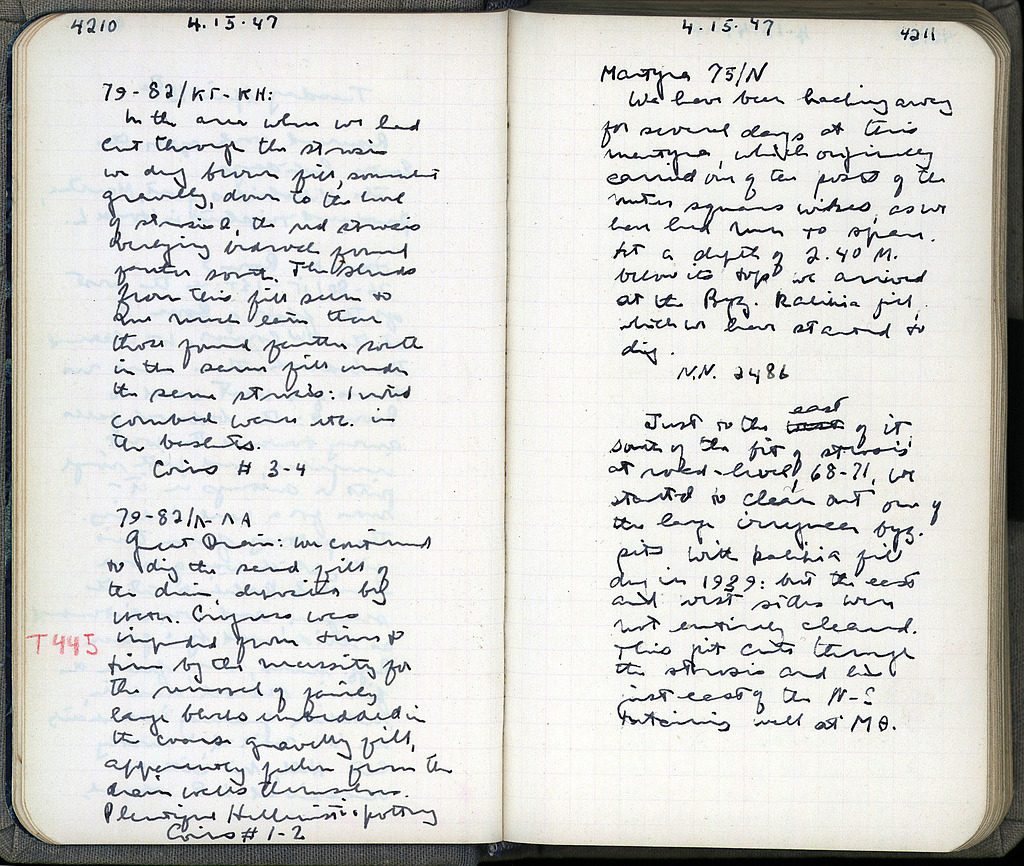 4210
4.15.47
79-82/ΚΓ-ΚΗ:
In the area where we had
cut through the strosis
we dug brown fill, somewhat
gravelly, down to the level
of strosis 2, the red strosis
bedrock found
farther south. The sherds
from this fill seem to
be much earlier than
those found farther south
in the same fill under
the same strosis: I noted
combed ware etc. in
the baskets.
Coins # 3-4
79-82/Λ-ΛΑ
Great Drain: we continued
to dig the sand fill of
the drain, deposited by
water. Progress was
T445
impeded from time to
time by the necessity for
the removal of fairly
large blocks imbedded in
the coarse gravelly fill,
apparently fallen from the
drain walls themselves.
Plentiful Hellenistic pottery
Coins # 1-2
4.15.47
4211
Martyra 75/Ν
We have been hacking away
for several days at this
martyra, which originally
carried one of the posts of the
as we
have had none to spare.
At a depth of 2.40 M.
below its top we arrived
at the Byz. kalikia fill,
which we have started to
dig.
N.N. 2486
Just to the east of it,
south of the pit of strosis
at road-level, 68-71, we
started to clean out one of
the large irregular byz.
pits with kalikia fill
dug in 1939: but the east
and west sides were
not entirely cleaned.
This pit cuts through
the strosis and lies
just east of the N-S
retaining wall at ΜΘ.